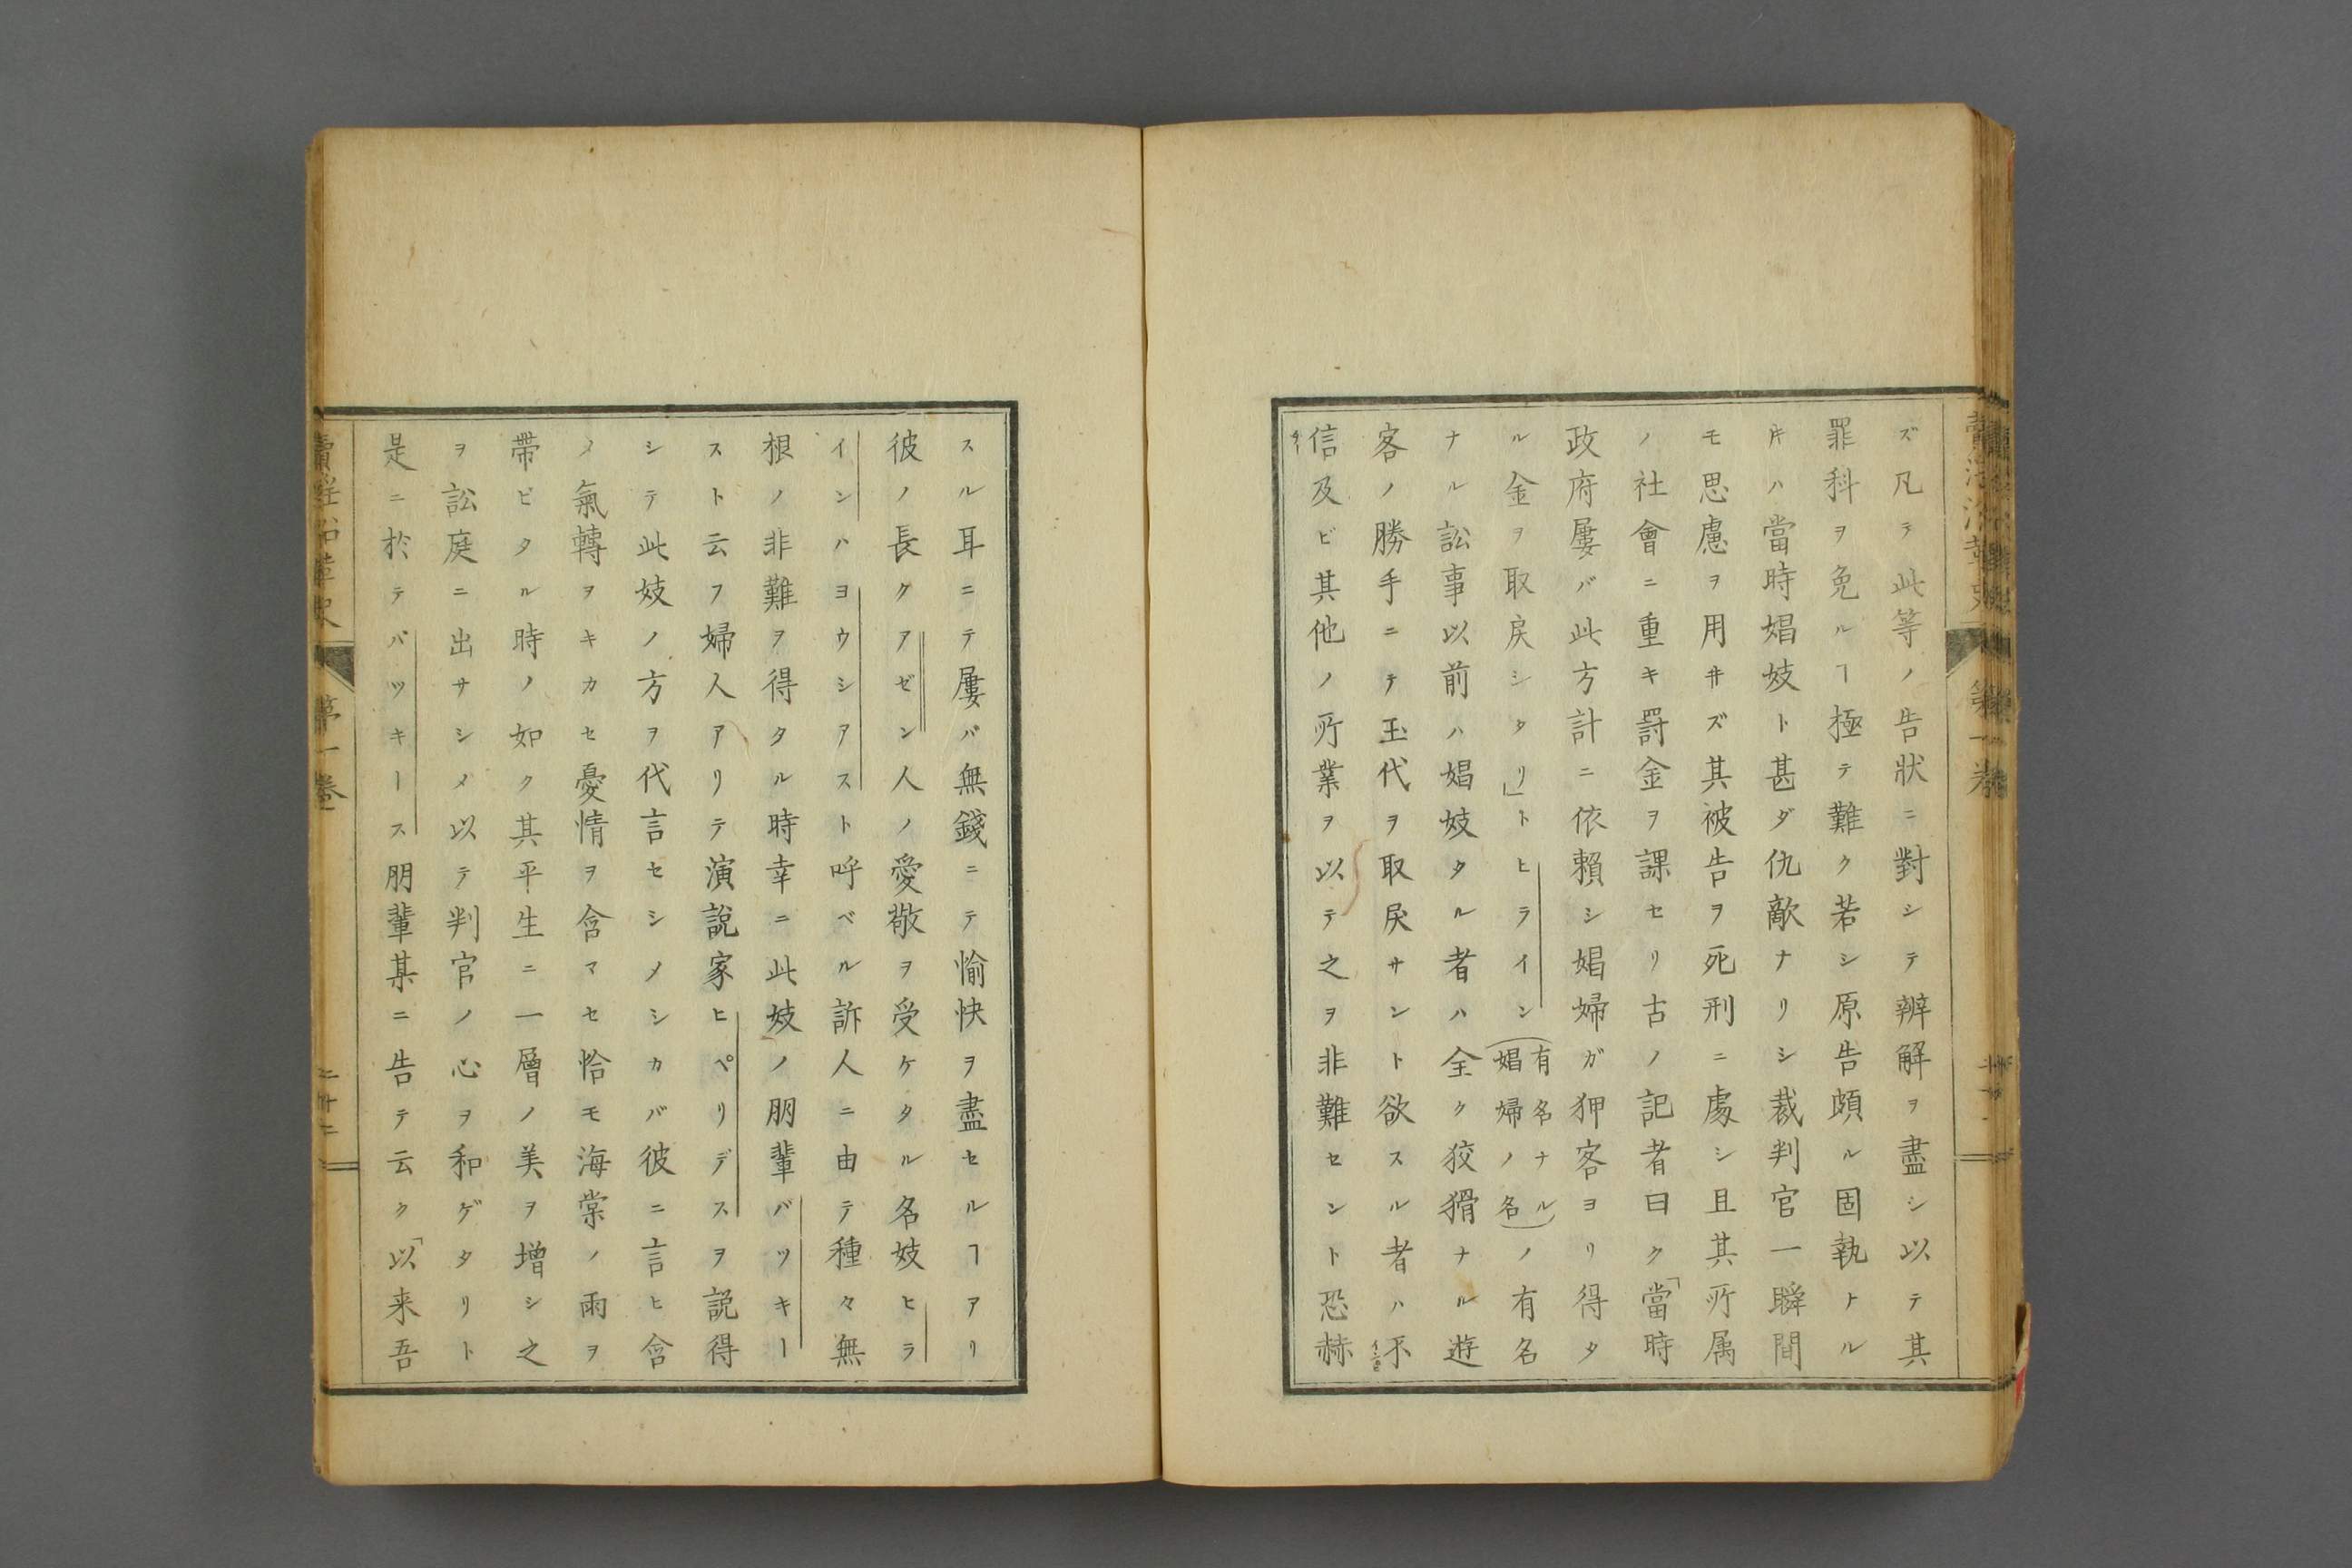 ズ凡テ此等ノ告狀ニ對シテ辨解ヲ盡シ以テ其
罪科ヲ免ルヿ極テ難ク若シ原告頗ル固執ナル
片ハ當時娼妓ト甚ダ仇敵ナリシ裁判官一瞬間
モ思慮ヲ用井ズ其被告ヲ死刑ニ處シ且其所属
ノ社會ニ重キ罸金ヲ課セリ古ノ記者曰ク「當時
政府屢バ此方計ニ依頼シ娼婦ガ狎客ヨリ得タ
ル金ヲ取戻シタリ」トヒライン(有名ナル娼婦ノ名)ノ有名
ナル訟事以前ハ娼妓タル者ハ全ク狡猾ナル遊
客ノ勝手ニテ玉代ヲ取戻サント欲スル者ハ不
信及ビ其他ノ所業ヲ以テ之ヲ非難セント恐赫
スル耳ニテ屢バ無錢ニテ愉快ヲ盡セルヿアリ
彼ノ長クアゼン人ノ愛敬ヲ受ケタル名妓ヒラ
インハヨウシアスト呼ベル訴人ニ由テ種々無
根ノ非難ヲ得タル時幸ニ此妓ノ朋輩バツキー
スト云フ婦人アリテ演説家ヒペリデスヲ説得
シテ此妓ノ方ヲ代言セシメシカバ彼ニ言ヒ含
メ氣轉ヲキカセ憂情ヲ含マセ恰モ海棠ノ雨ヲ
帶ビタル時ノ如ク其平生ニ一層ノ美ヲ增シ之
ヲ訟庭ニ出サシメ以テ判官ノ心ヲ和ゲタリト
是ニ於テバツキース朋輩某ニ告テ云ク「以来吾
第一巻